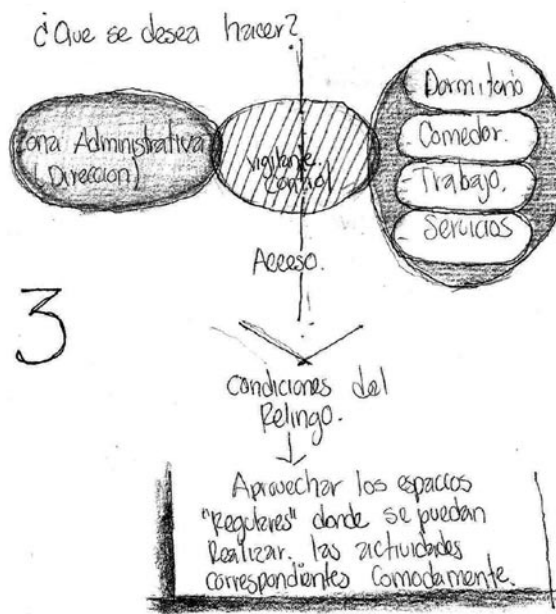 ¿Que se desea hacer?
Zona Administrativa
(Direccion)
Vigilante.
Control
Dormitorio
Comedor.
Trabajo.
Servicios
Acceso.
3
Condiciones del
Relingo.
Aprovechar los espacios
"Regulares" donde se puedan
Realizar. las actividades
correspondientes Comodamente.